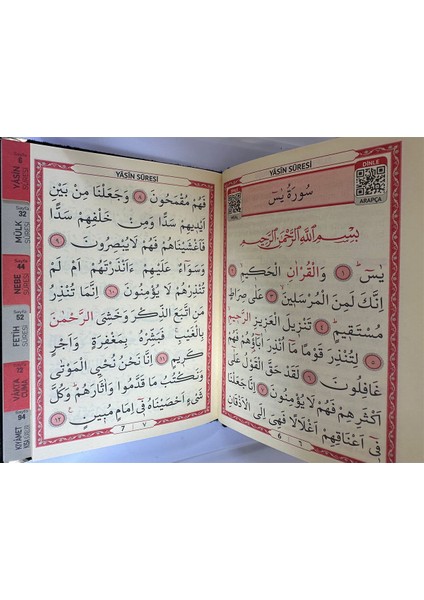 YÂSİN SÛRESİ
سُورَةُ يٰسٓ
DİNLE
ARAPÇA
بِسْمِ اللهِ الرَّحْمٰنِ الرَّحِيمِ
يٰسٓ ۝١ وَالْقُرْاٰنِ الْحَكِيمِ ۝٢
اِنَّكَ لَمِنَ الْمُرْسَلِينَ ۝٣ عَلٰى صِرَاطٍ
مُسْتَقِيمٍ ۝٤ تَنْزِيلَ الْعَزِيزِ الرَّحِيمِ ۝٥
لِتُنْذِرَ قَوْمًا مَٓا اُنْذِرَ اٰبَٓاؤُ۬هُمْ فَهُمْ
غَافِلُونَ ۝٦ لَقَدْ حَقَّ الْقَوْلُ عَلٰٓى
اَكْثَرِهِمْ فَهُمْ لَا يُؤْمِنُونَ ۝٧ اِنَّا جَعَلْنَا
فِٓى اَعْنَاقِهِمْ اَغْلَالًا فَهِىَ اِلَى الْاَذْقَانِ
6 ٦
YÂSİN SÛRESİ
فَهُمْ مُقْمَحُونَ ۝٨ وَجَعَلْنَا مِنْ بَيْنِ
اَيْدِيهِمْ سَدًّا وَمِنْ خَلْفِهِمْ سَدًّا
فَاَغْشَيْنَاهُمْ فَهُمْ لَا يُبْصِرُونَ ۝٩
وَسَوَٓاءٌ عَلَيْهِمْ ءَاَنْذَرْتَهُمْ اَمْ لَمْ
تُنْذِرْهُمْ لَا يُؤْمِنُونَ ۝١٠ اِنَّمَا تُنْذِرُ
مَنِ اتَّبَعَ الذِّكْرَ وَخَشِىَ الرَّحْمٰنَ
بِالْغَيْبِ فَبَشِّرْهُ بِمَغْفِرَةٍ وَاَجْرٍ
كَرِيمٍ ۝١١ اِنَّا نَحْنُ نُحْيِى الْمَوْتٰى
وَنَكْتُبُ مَا قَدَّمُوا وَاٰثَارَهُمْ وَكُلَّ
شَىْءٍ اَحْصَيْنَاهُ فِٓى اِمَامٍ مُبِينٍ ۝١٢
7 ٧
Sayfa
6
YÂSİN
SÛRESİ
Sayfa
32
MÜLK
SÛRESİ
Sayfa
44
NEBE
SÛRESİ
Sayfa
52
FETİH
SÛRESİ
VÂKIA
CUMA
Sayfa
94
KIYÂMET